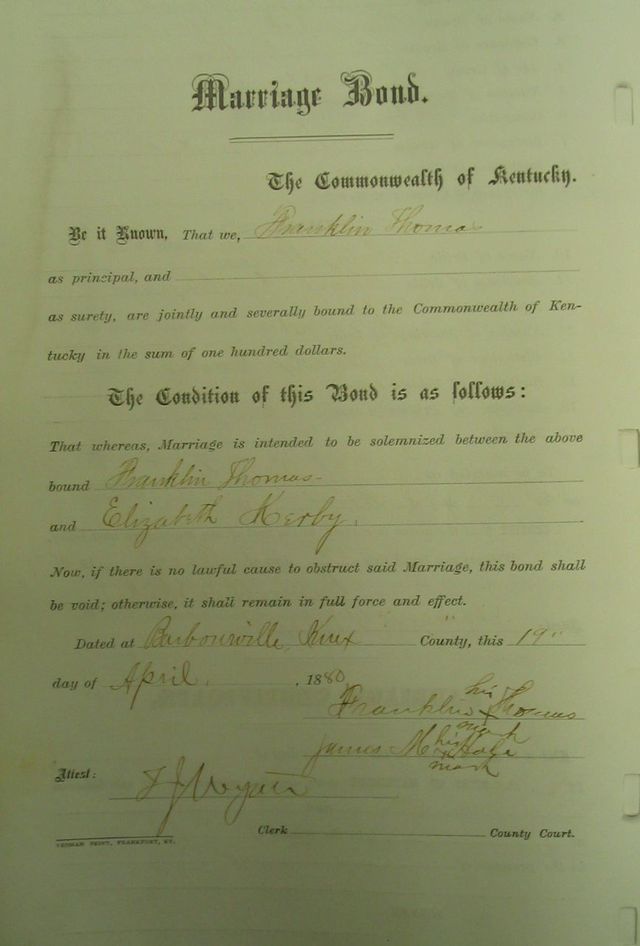 Marriage Bond.
The Commonwealth of Kentucky.
Be it Known, That we, Franklin Thomas
as principal, and
as surety, are jointly and severally bound to the Commonwealth of Ken-
tucky in the sum of one hundred dollars.
The Condition of this Bond is as follows:
That whereas, Marriage is intended to be solemnized between the above
bound Franklin Thomas
and Elizabeth Kerby.
Now, if there is no lawful cause to obstruct said Marriage, this bond shall
be void; otherwise, it shall remain in full force and effect.
Dated at Barbourville, Knox County, this 19"
day of April, 1880
his
Franklin x Thomas
mark
his
James M x
mark
Attest:
Clerk County Court.
YEOMAN PRINT, FRANKFORT, KY.